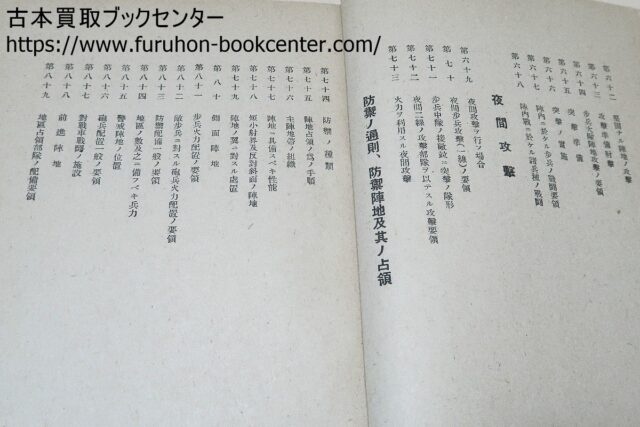 古本買取ブックセンター
https://www.furuhon-bookcenter.com/
第六十二
堅固ナル陣地ノ攻撃
第六十三
攻撃準備射撃
第六十四
步兵火砲陣地攻撃ノ要領
第六十五
突撃準備
第六十六
突撃ノ實施
第六十七
陣內ニ於ケル步兵ノ戰鬪要領
第六十八
陣內戰ニ於ケル諸兵種ノ戰鬪
夜間攻擊
第六十九
夜間攻擊ヲ行フ場合
第七十
夜間步兵攻擊(一線)ノ要領
第七十一
步兵中隊ノ接敵竝ニ突擊ノ隊形
第七十二
夜間二線ノ攻擊部隊ヲ以テスル攻擊要領
第七十三
火力ヲ利用スル夜間攻擊
防禦ノ通則、防禦陣地及其ノ占領
第七十四
防禦ノ種類
第七十五
陣地占領ノ爲ノ手順
第七十六
主陣地帶ノ組織
第七十七
陣地ニ具備スベキ性能
第七十八
短小射界及反對斜面ノ陣地
第七十九
陣地ノ翼ニ對スル處置
第八十
側面陣地
第八十一
步兵火力配置ノ要領
第八十二
敵步兵ニ對スル砲兵火力配置ノ要領
第八十三
防禦配備一般ノ要領
第八十四
地區ノ數及之ニ備フベキ兵力
第八十五
警戒陣地ノ位置
第八十六
砲兵配置一般ノ要領
第八十七
對戰車戰鬪ノ施設
第八十八
前進陣地
第八十九
地區占領部隊ノ配備要領